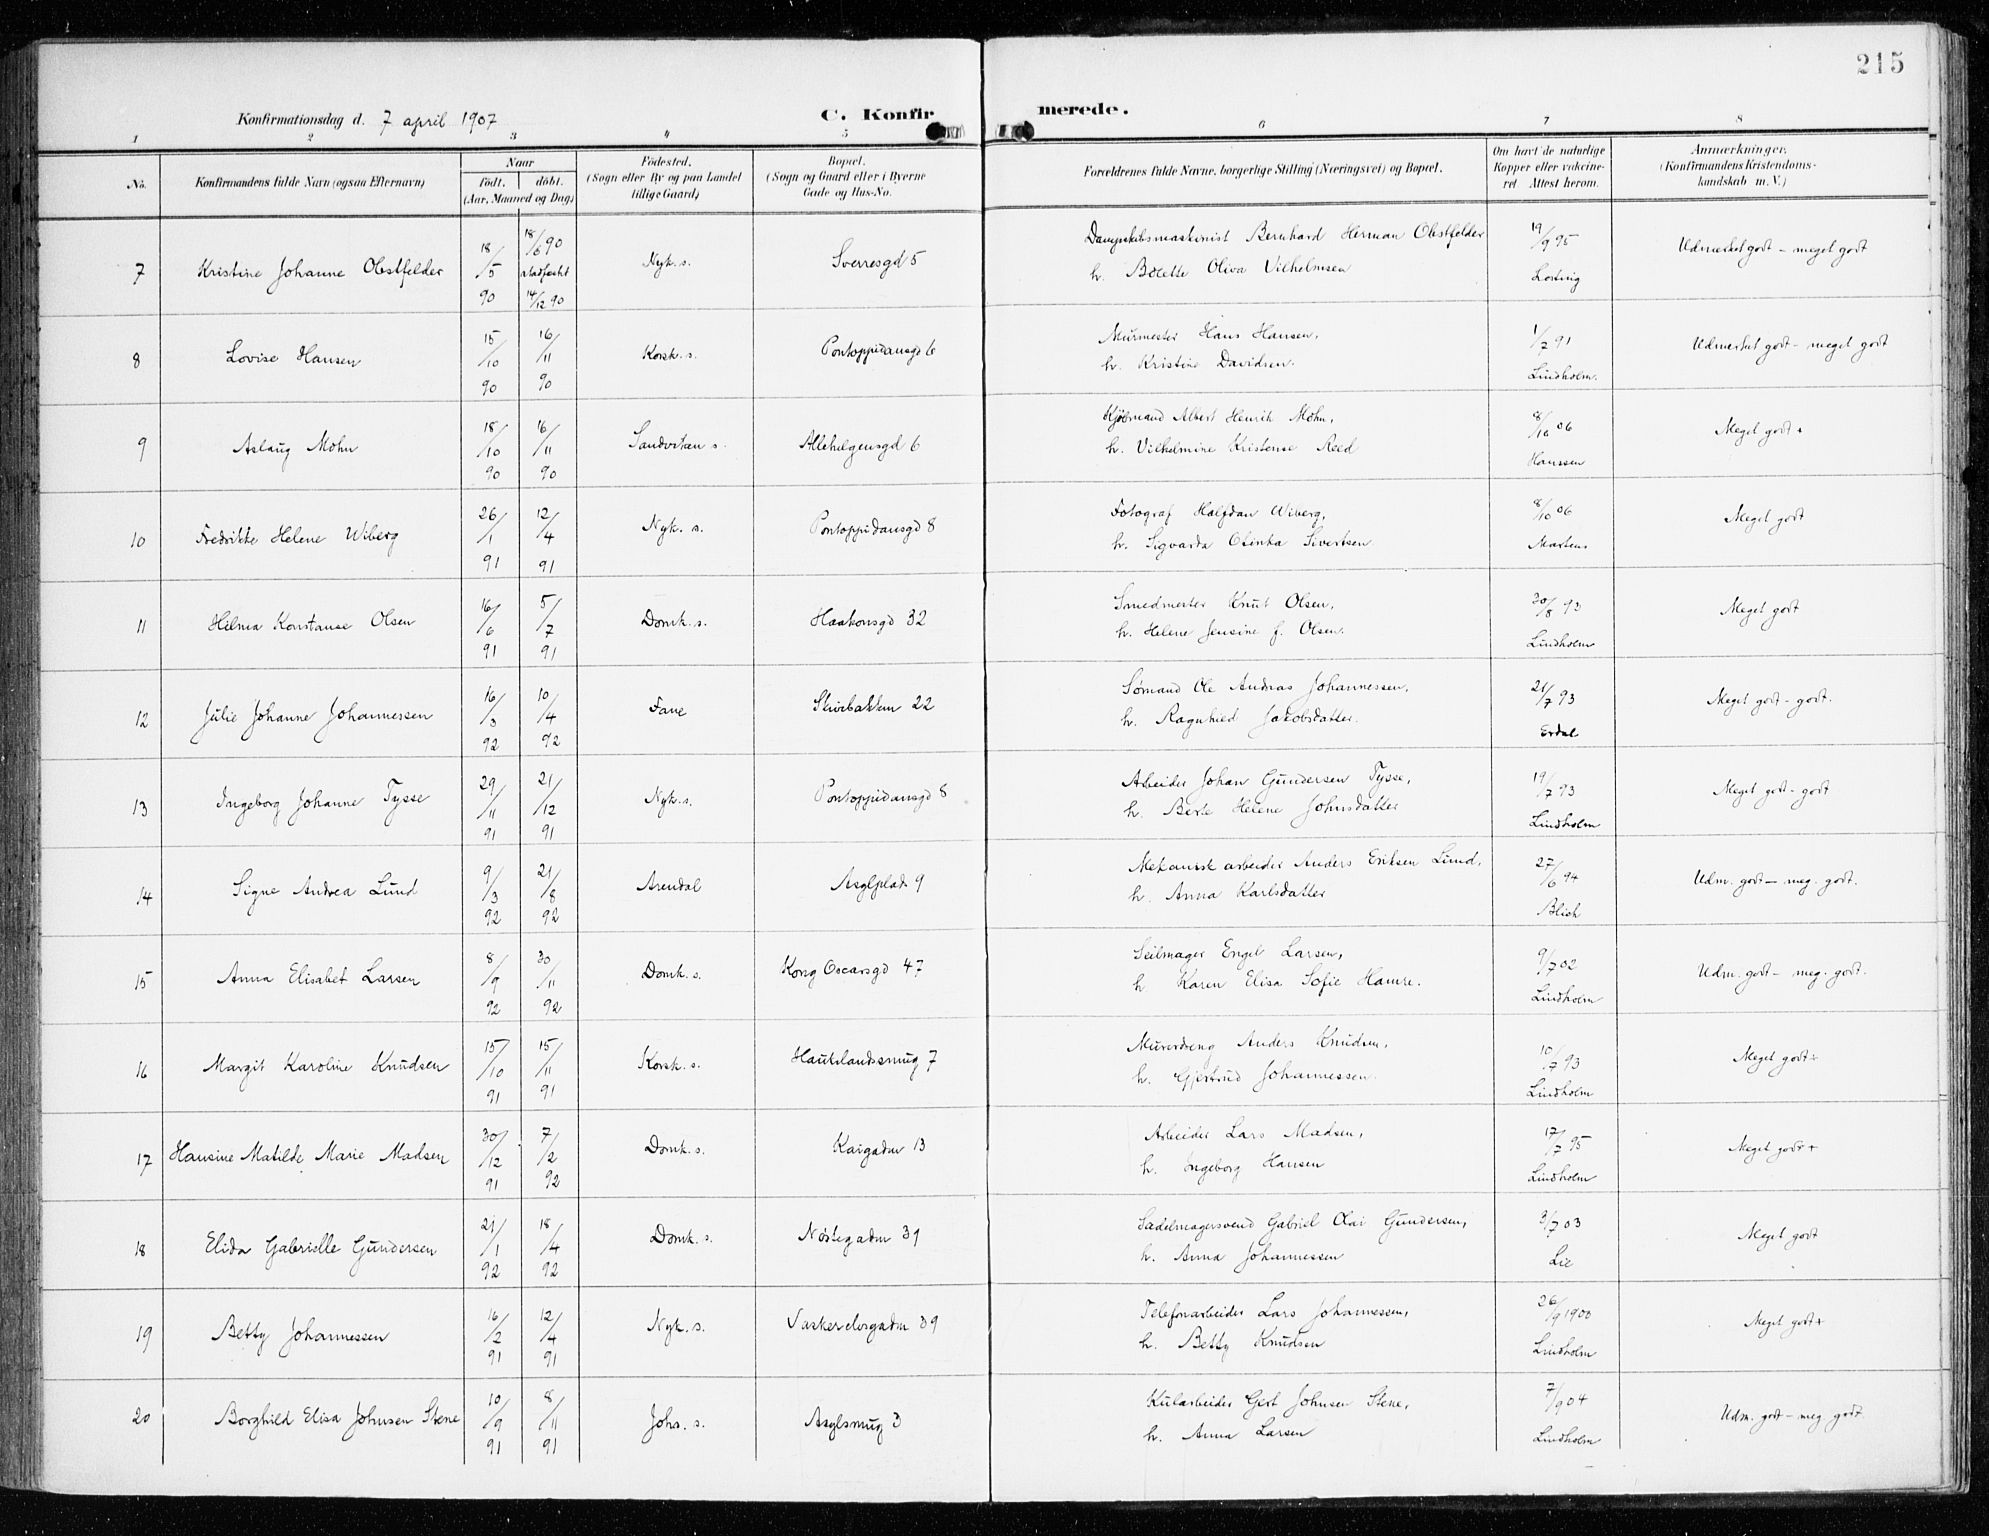 215
Konfirmationsdag d. 7 april 1907
C. Konfirmerede.
1 2 3 " 5 6 7 8
No. Konfirmandens fulde Navn (ogsaa Efternavn) Naar födt. döbt. (Aar, Maaned og Dag) Födested. (Sogn eller By og paa Landet tillige Gaard) Bopæl. (Sogn og Gaard eller i Byerne Gade og Hus-No. Forældrenes fulde Navne, borgerlige Stilling (Næringsvei) og Bopæl. Om havt de naturlige Kopper eller vakcineret Attest herom. Anmærkninger. (Konfirmandens Kristendomskundskab m. V.)
7 Kristine Johanne Obstfelder 18/5 90 18/6 90 stadfæstet 14/12 90 Nyk. s. Sverresgd 5 Dampskibsmaskinist Bernhard Herman Obstfelder
h. Bolette Oliva Vilhelmsen 19/9 95 Udmerket godt – meget godt
8 Lovise Hansen 15/10 90 16/11 90 Korsk. s. Pontoppidansgd 6 Murmester Hans Hansen,
h. Kristine Davidsen. 1/7 91 Lindholm. Udmerket godt – meget godt
9 Aslaug Mohn 18/10 90 16/11 90 Sandviken s. Allehelgensgd 6 Kjøbmand Albert Henrik Mohn,
h. Vilhelmine Kristense Reed 8/10 06 Hanssen Meget godt +
10 Fredrikke Helene Wiberg 26/1 91 12/4 91 Nyk. s. Pontoppidansgd 8 Fotograf Halfdan Wiberg,
h. Sigvarda Otinka Sivertsen 8/10 06 Martens Meget godt
11 Helma Konstanse Olsen 16/6 91 5/7 91 Domk. s. Haakonsgd 32 Smedmester Knut Olsen,
h. Helene Jensine f. Olsen. 30/8 93 Lindholm Meget godt
12 Julie Johanne Johannessen 16/3 92 10/4 92 Fane Skivebakken 22 Sømand Ole Andreas Johannessen,
h. Ragnhild Jakobsdatter. 21/7 93 Erdal Meget godt – godt.
13 Ingeborg Johanne Tysse 29/11 91 21/12 91 Nyk. s. Pontoppidansgd 8 Arbeider Johan Gundersen Tysse,
h. Berte Helene Johnsdatter 19/7 93 Lindholm Meget godt – godt
14 Signe Andrea Lund 9/3 92 21/8 92 Arendal Asylplads 9 Mekanisk arbeider Anders Eriksen Lund,
h. Anna Karlsdatter 27/6 94 Blich Udm. godt – meg. godt.
15 Anna Elisabet Larsen 8/9 92 30/11 92 Domk. s. Kong Oscarsgd 47 Seilmager Engel Larsen,
h. Karen Elisa Sofie Hamre. 9/7 02 Lindholm Udm. godt – meg. godt.
16 Margit Karoline Knudsen 15/10 91 15/11 91 Korsk. s. Hauklandssmug 7 Murerdreng Anders Knudsen,
h. Gjertrud Johannessen. 10/7 93 Lindholm Meget godt +
17 Hansine Matilde Marie Madsen 30/12 91 7/2 92 Domk. s. Kaigaden 13 Arbeider Lars Madsen,
h. Ingeborg Hansen 17/7 95 Lindholm Meget godt +
18 Elida Gabrielle Gundersen 21/1 92 18/4 92 Domk. s. Nøstegaden 31 Sadelmagersvend Gabriel Olai Gundersen,
h. Anna Johannessen 3/7 03 Lie Meget godt
19 Betty Johannessen 16/2 91 12/4 91 Nyk. s. Vaskerelvsgaden 39 Telefonarbeider Lars Johannessen,
h. Betty Knudsen 26/9 1900 Lindholm Meget godt +
20 Borghild Elisa Johnsen Stene 10/9 91 8/11 91 Johs. s. Asylsmug 3 Kularbeider Gert Johnsen Stene,
h. Anna Larsen 7/9 04 Lindholm Udm. godt – meg. godt.